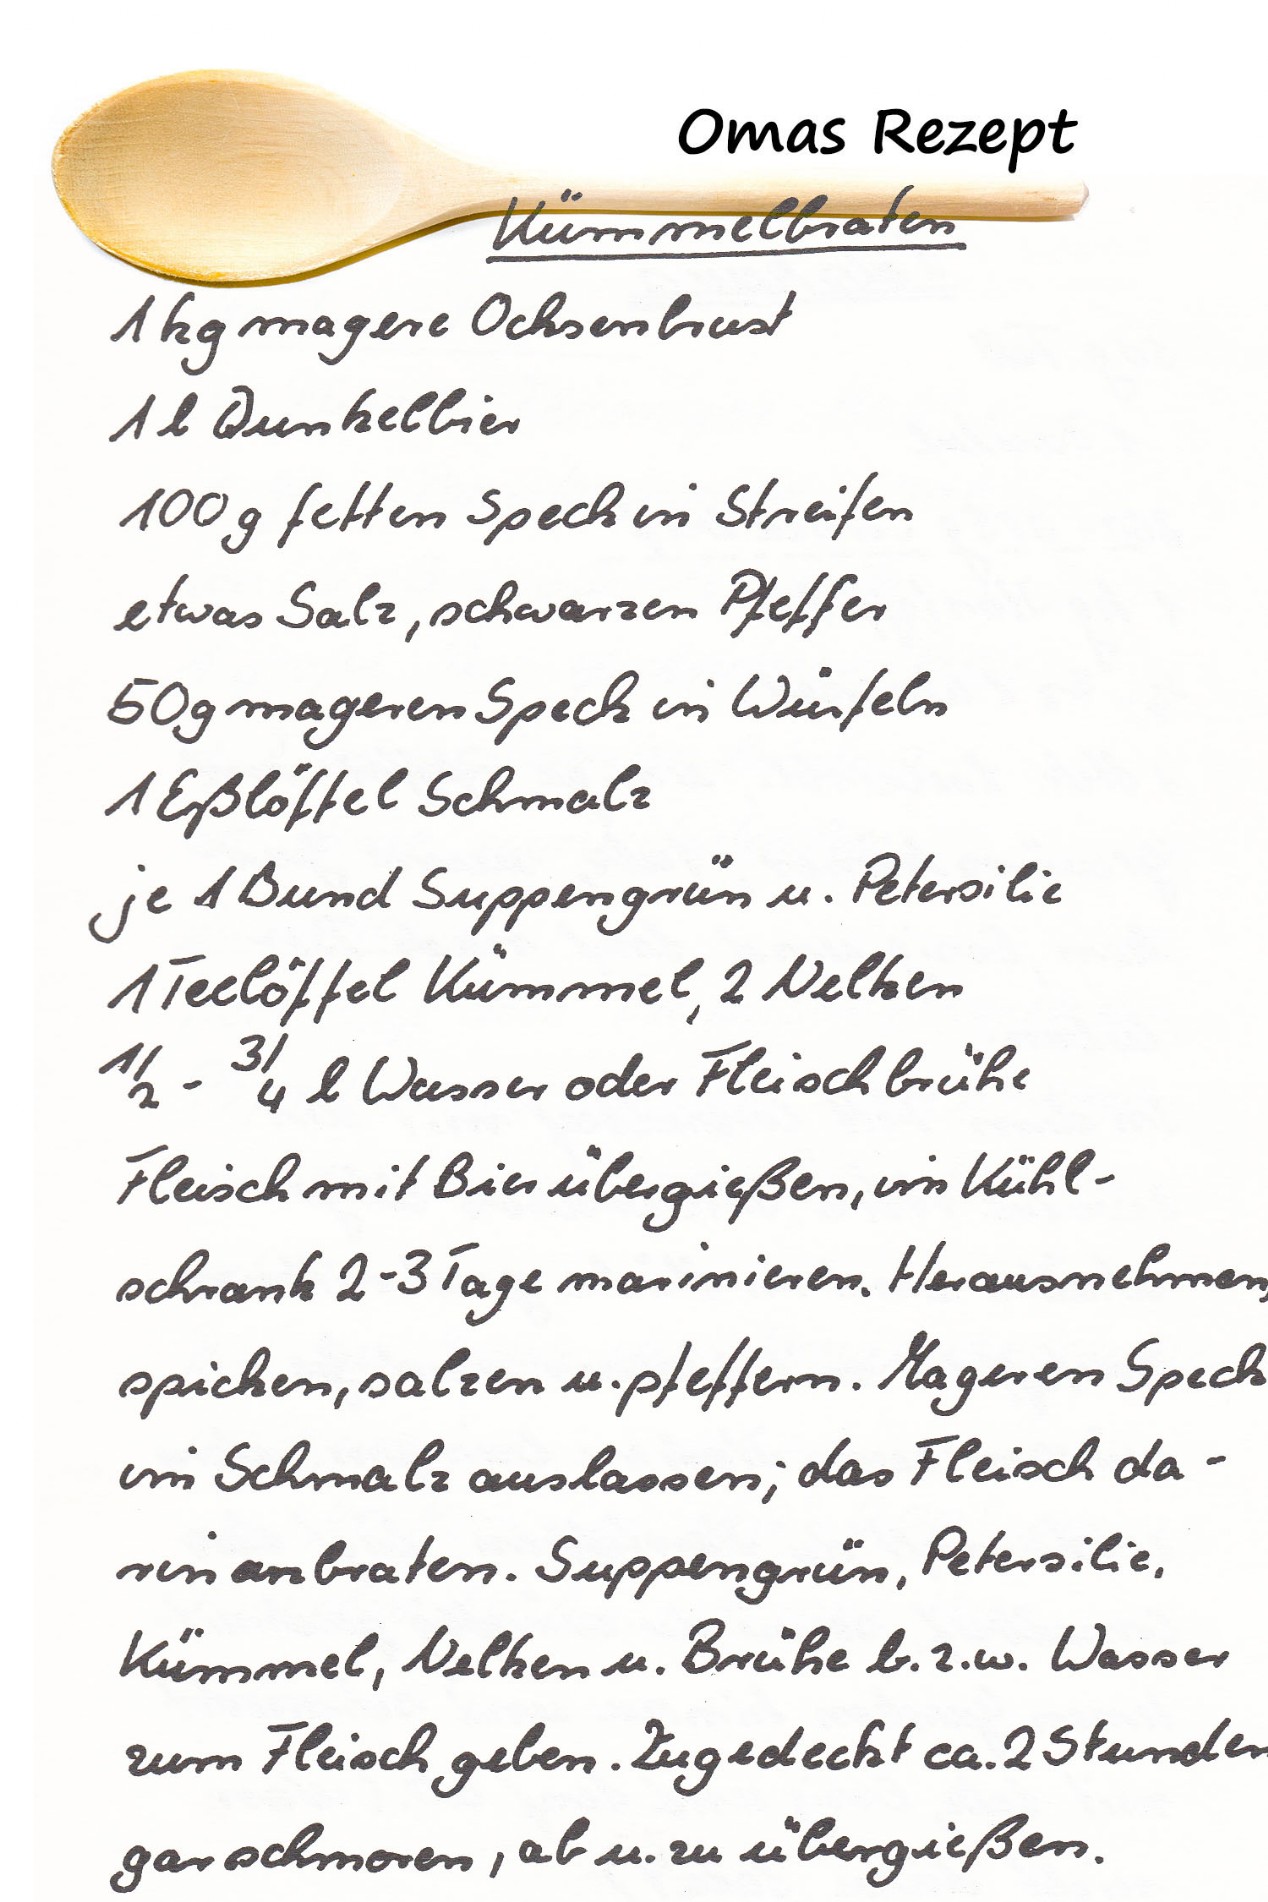 Omas Rezept
Kümmelbraten
1 kg magere Ochsenbrust
1 l Dunkelbier
100 g fetten Speck in Streifen
etwas Salz, schwarzen Pfeffer
50 g mageren Speck in Würfeln
1 Eßlöffel Schmalz
je 1 Bund Suppengrün u. Petersilie
1 Teelöffel Kümmel, 2 Nelken
1/2 - 3/4 l Wasser oder Fleischbrühe
Fleisch mit Bier übergießen, im Kühl-
schrank 2-3 Tage marinieren. Herausnehmen,
spicken, salzen u. pfeffern. Mageren Speck
im Schmalz auslassen; das Fleisch da-
rin anbraten. Suppengrün, Petersilie,
Kümmel, Nelken u. Brühe b.z.w. Wasser
zum Fleisch geben. Zugedeckt ca. 2 Stunden
garschmoren, ab u. zu übergießen.